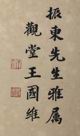 振東先生雅属
觀堂王國維